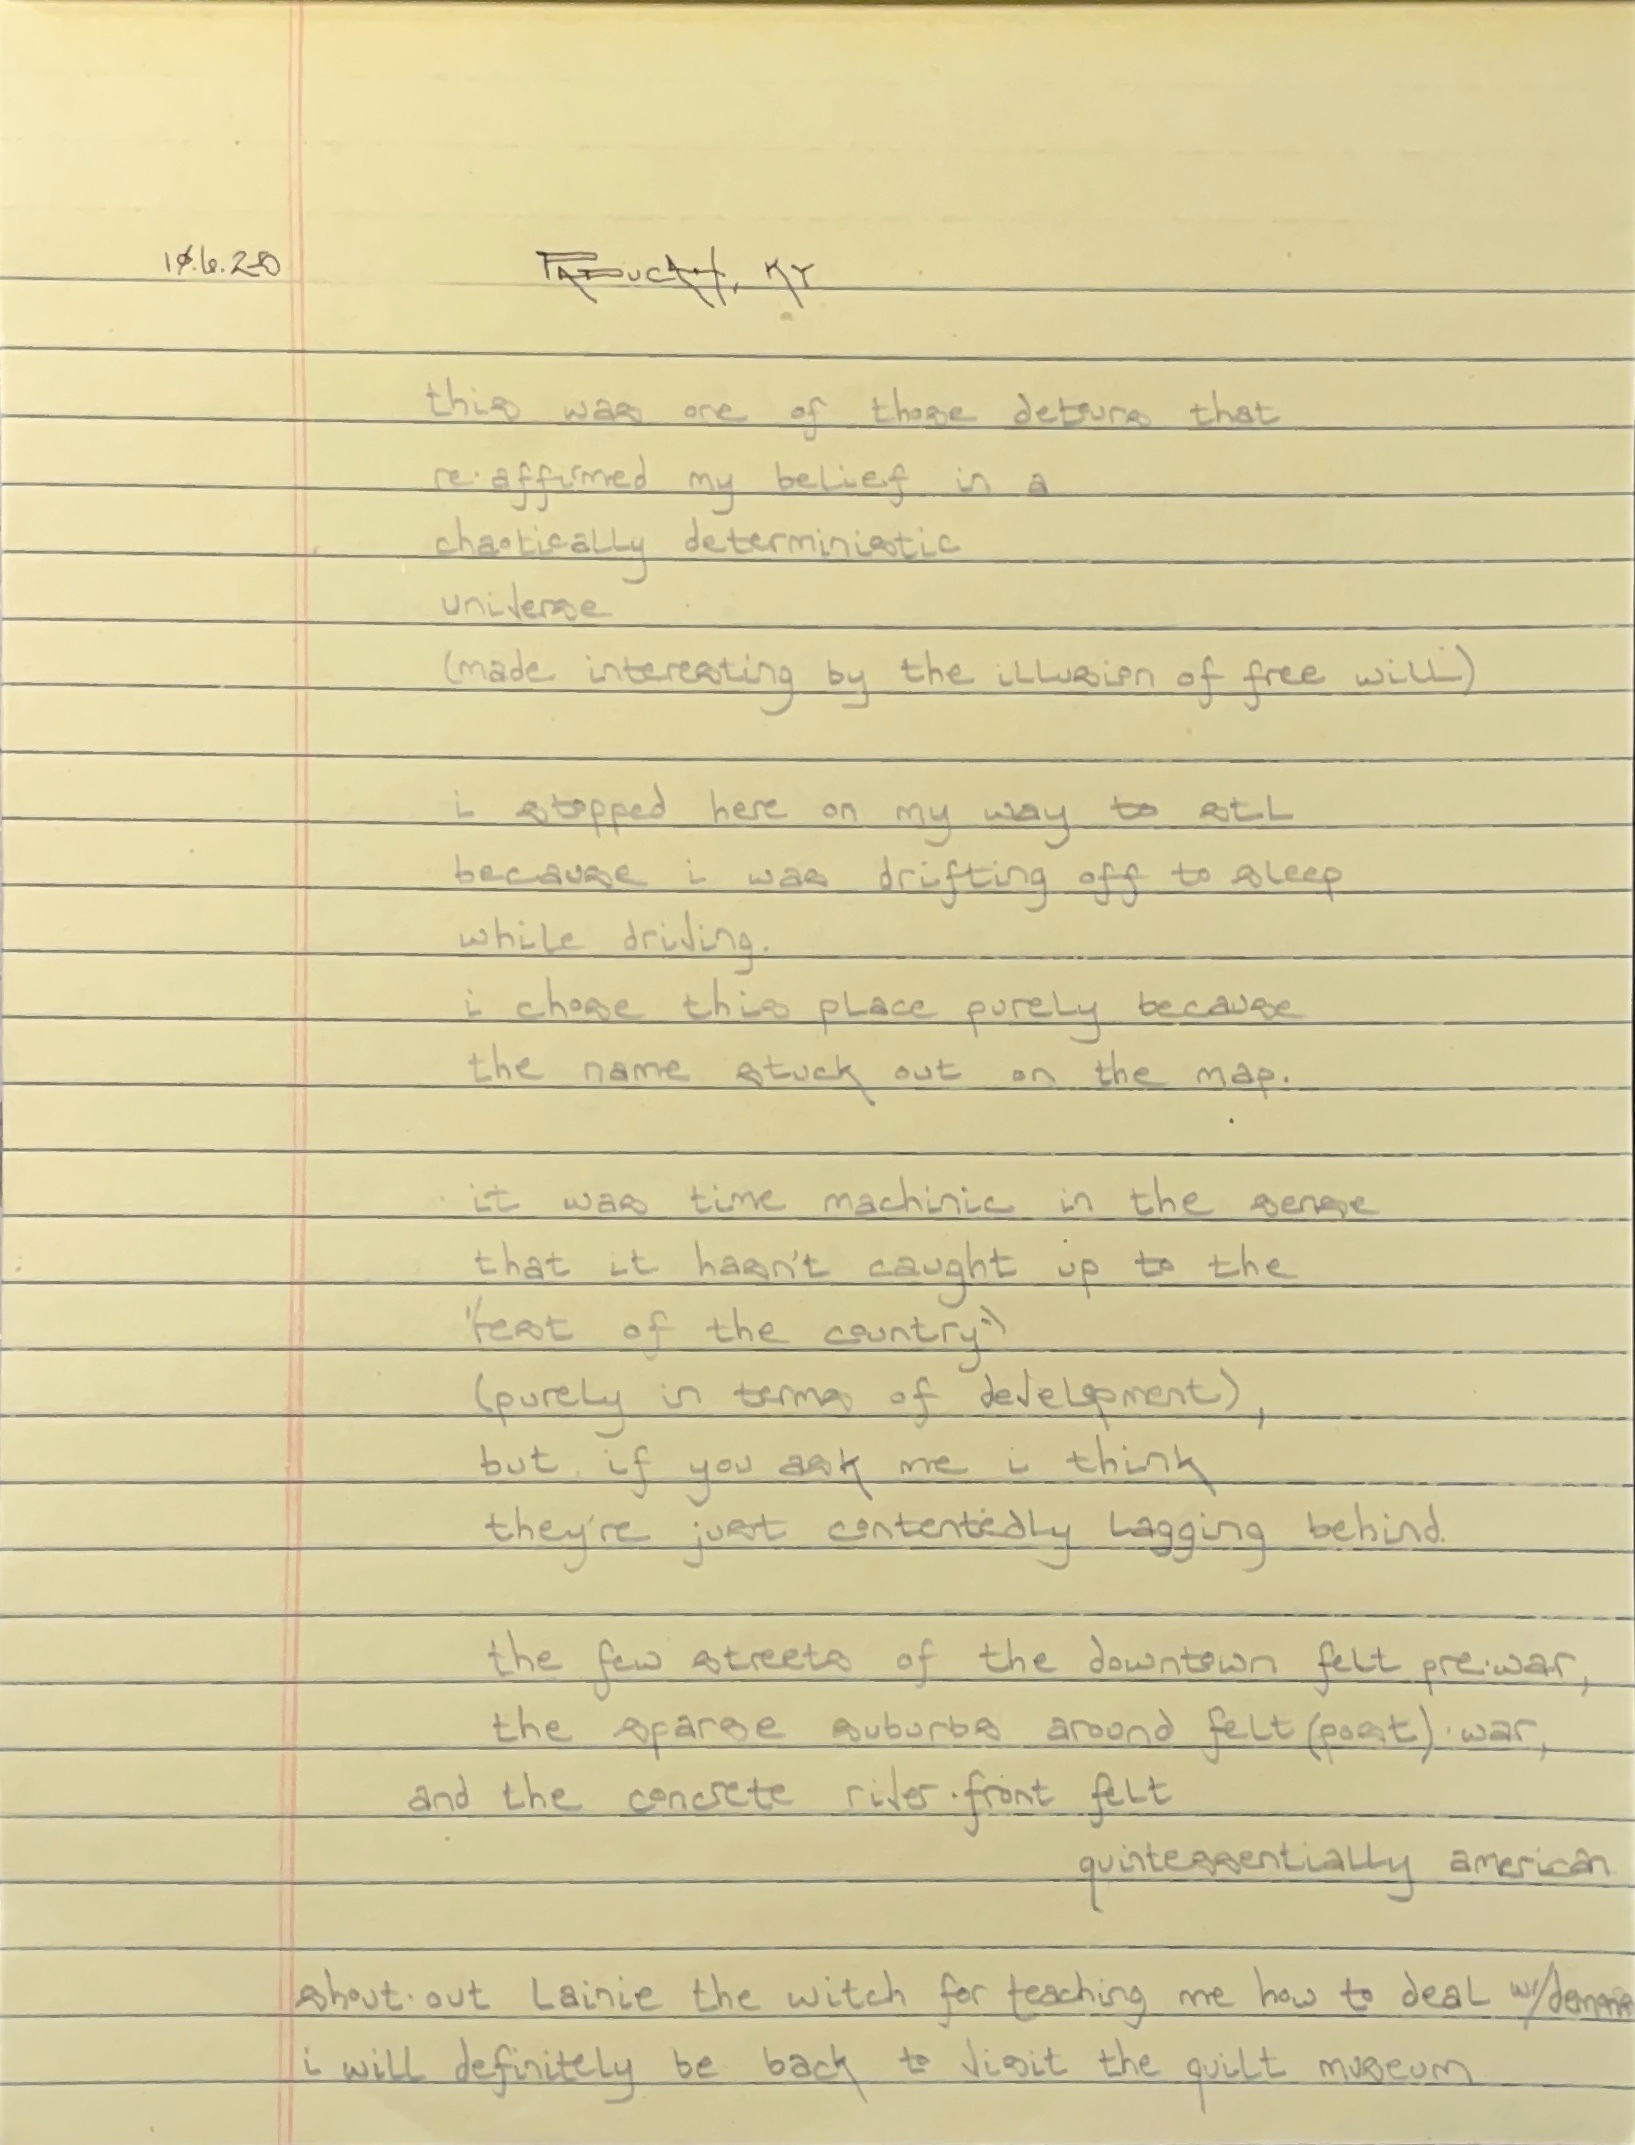 10.6.20 PADUCAH, KY
this was one of those detours that
re·affirmed my belief in a
chaotically deterministic
universe
(made interesting by the illusion of free will)
i stopped here on my way to stL
because i was drifting off to sleep
while driving.
i chose this place purely because
the name stuck out on the map.
it was time machinic in the sense
that it hasn't caught up to the
"rest of the country"
(purely in terms of development),
but if you ask me i think
they're just contentedly lagging behind.
the few streets of the downtown felt pre·war,
the sparse suburbs around felt (post)·war,
and the concrete river·front felt
quintessentially american
shout·out Lainie the witch for teaching me how to deal w/demons
i will definitely be back to visit the quilt museum